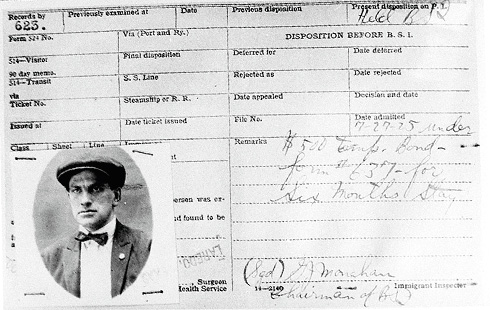 Records by Previously examined at Date Previous disposition Present disposition on P. I.
623. Held B.S.I.
Form 524 No. Via (Port and Ry.) DISPOSITION BEFORE B. S. I.
514—Visitor Final disposition Deferred for Date deferred
90 day memo.
514—Transit S. S. Line Rejected as Date rejected
via
Ticket No. Steamship or R. R. Date appealed Decision and date
Issued at Date ticket issued File No. Date admitted
7-27-25 under
Class Sheet Line Remarks $500 Temp. Bond—
form # 637—for
Six Months Stay
person was ex-
d found to be
Surgeon
Health Service
(Sgd) Monahan
14—2140 Immigrant Inspector
Chairman of B.S.I.